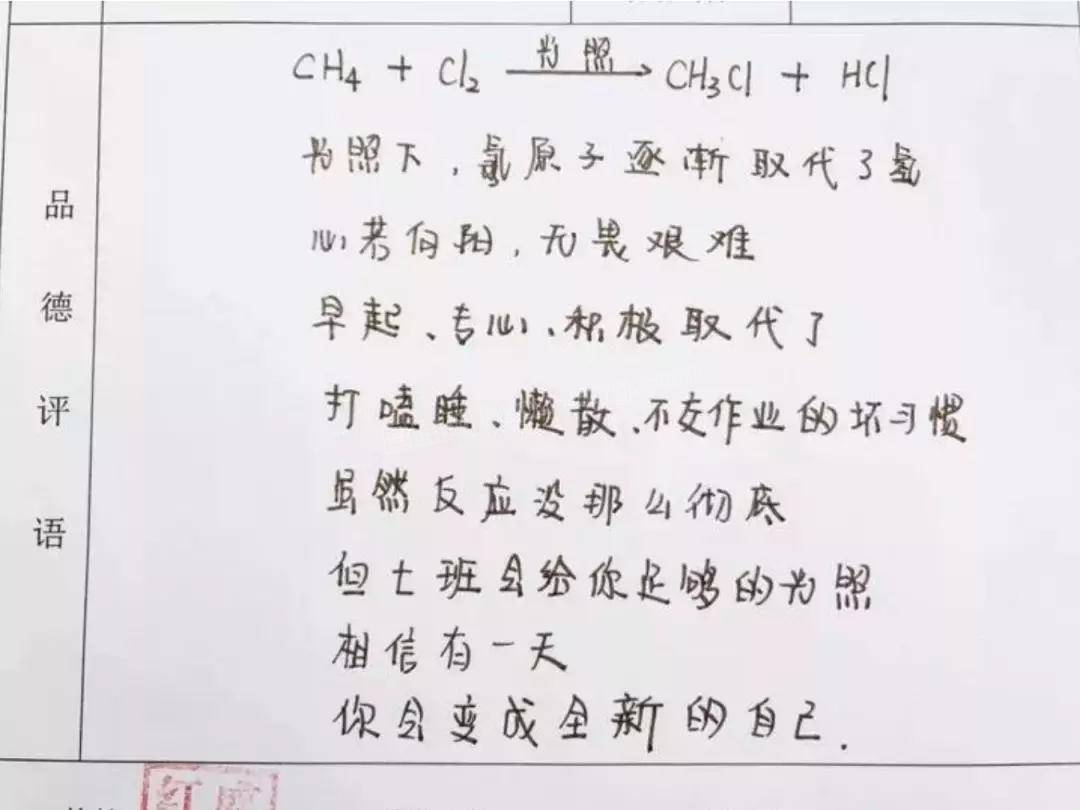 CH₄ + Cl₂ —光照→ CH₃Cl + HCl
光照下，氯原子逐渐取代了氢
心若向阳，无畏艰难
早起、专心、积极取代了
打嗑睡、懒散、不交作业的坏习惯
虽然反应没那么彻底
但七班会给你足够的光照
相信有一天
你会变成全新的自己.
品德评语
红